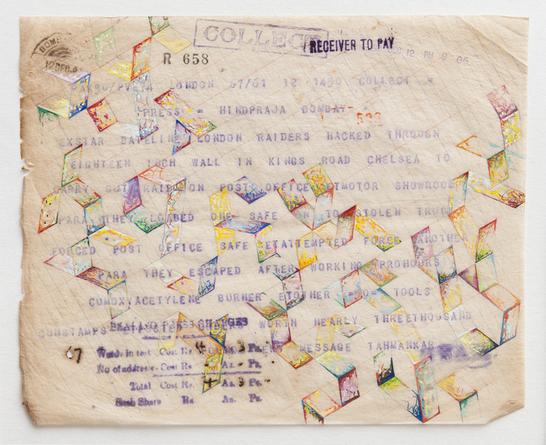 COLLECT
RECEIVER TO PAY
12 DEC
R 658
LONDON 67/61 12 1450 COLLECT =
PRESS = HINDPRAJA BOMBAY-
EXSTAR DATELINE LONDON RAIDERS HACKED THROUGH
EIGHTEEN INCH WALL IN KINGS ROAD CHELSEA TO
CARRY OUT RAIDS ON POST OFFICE ETMOTOR SHOWROOM
PARA THEY LOADED ONE SAFE ON TO STOLEN TRUCK
FORCED POST OFFICE SAFE ETATTEMPTED FORCE ANOTHER
PARA THEY ESCAPED AFTER WORKING PROHOURS
ACETYLENE BURNER ETOTHER TOOLS
WORTH NEARLY THREETHOUSAND
MESSAGE TAHMANKAR
67
Words in text Cost Rs. 4 As. 3 Ps.
No of address Cost Rs. As. - Ps.
Total Cost Rs. 4 As. 3 Ps.
Share Rs As. Ps.